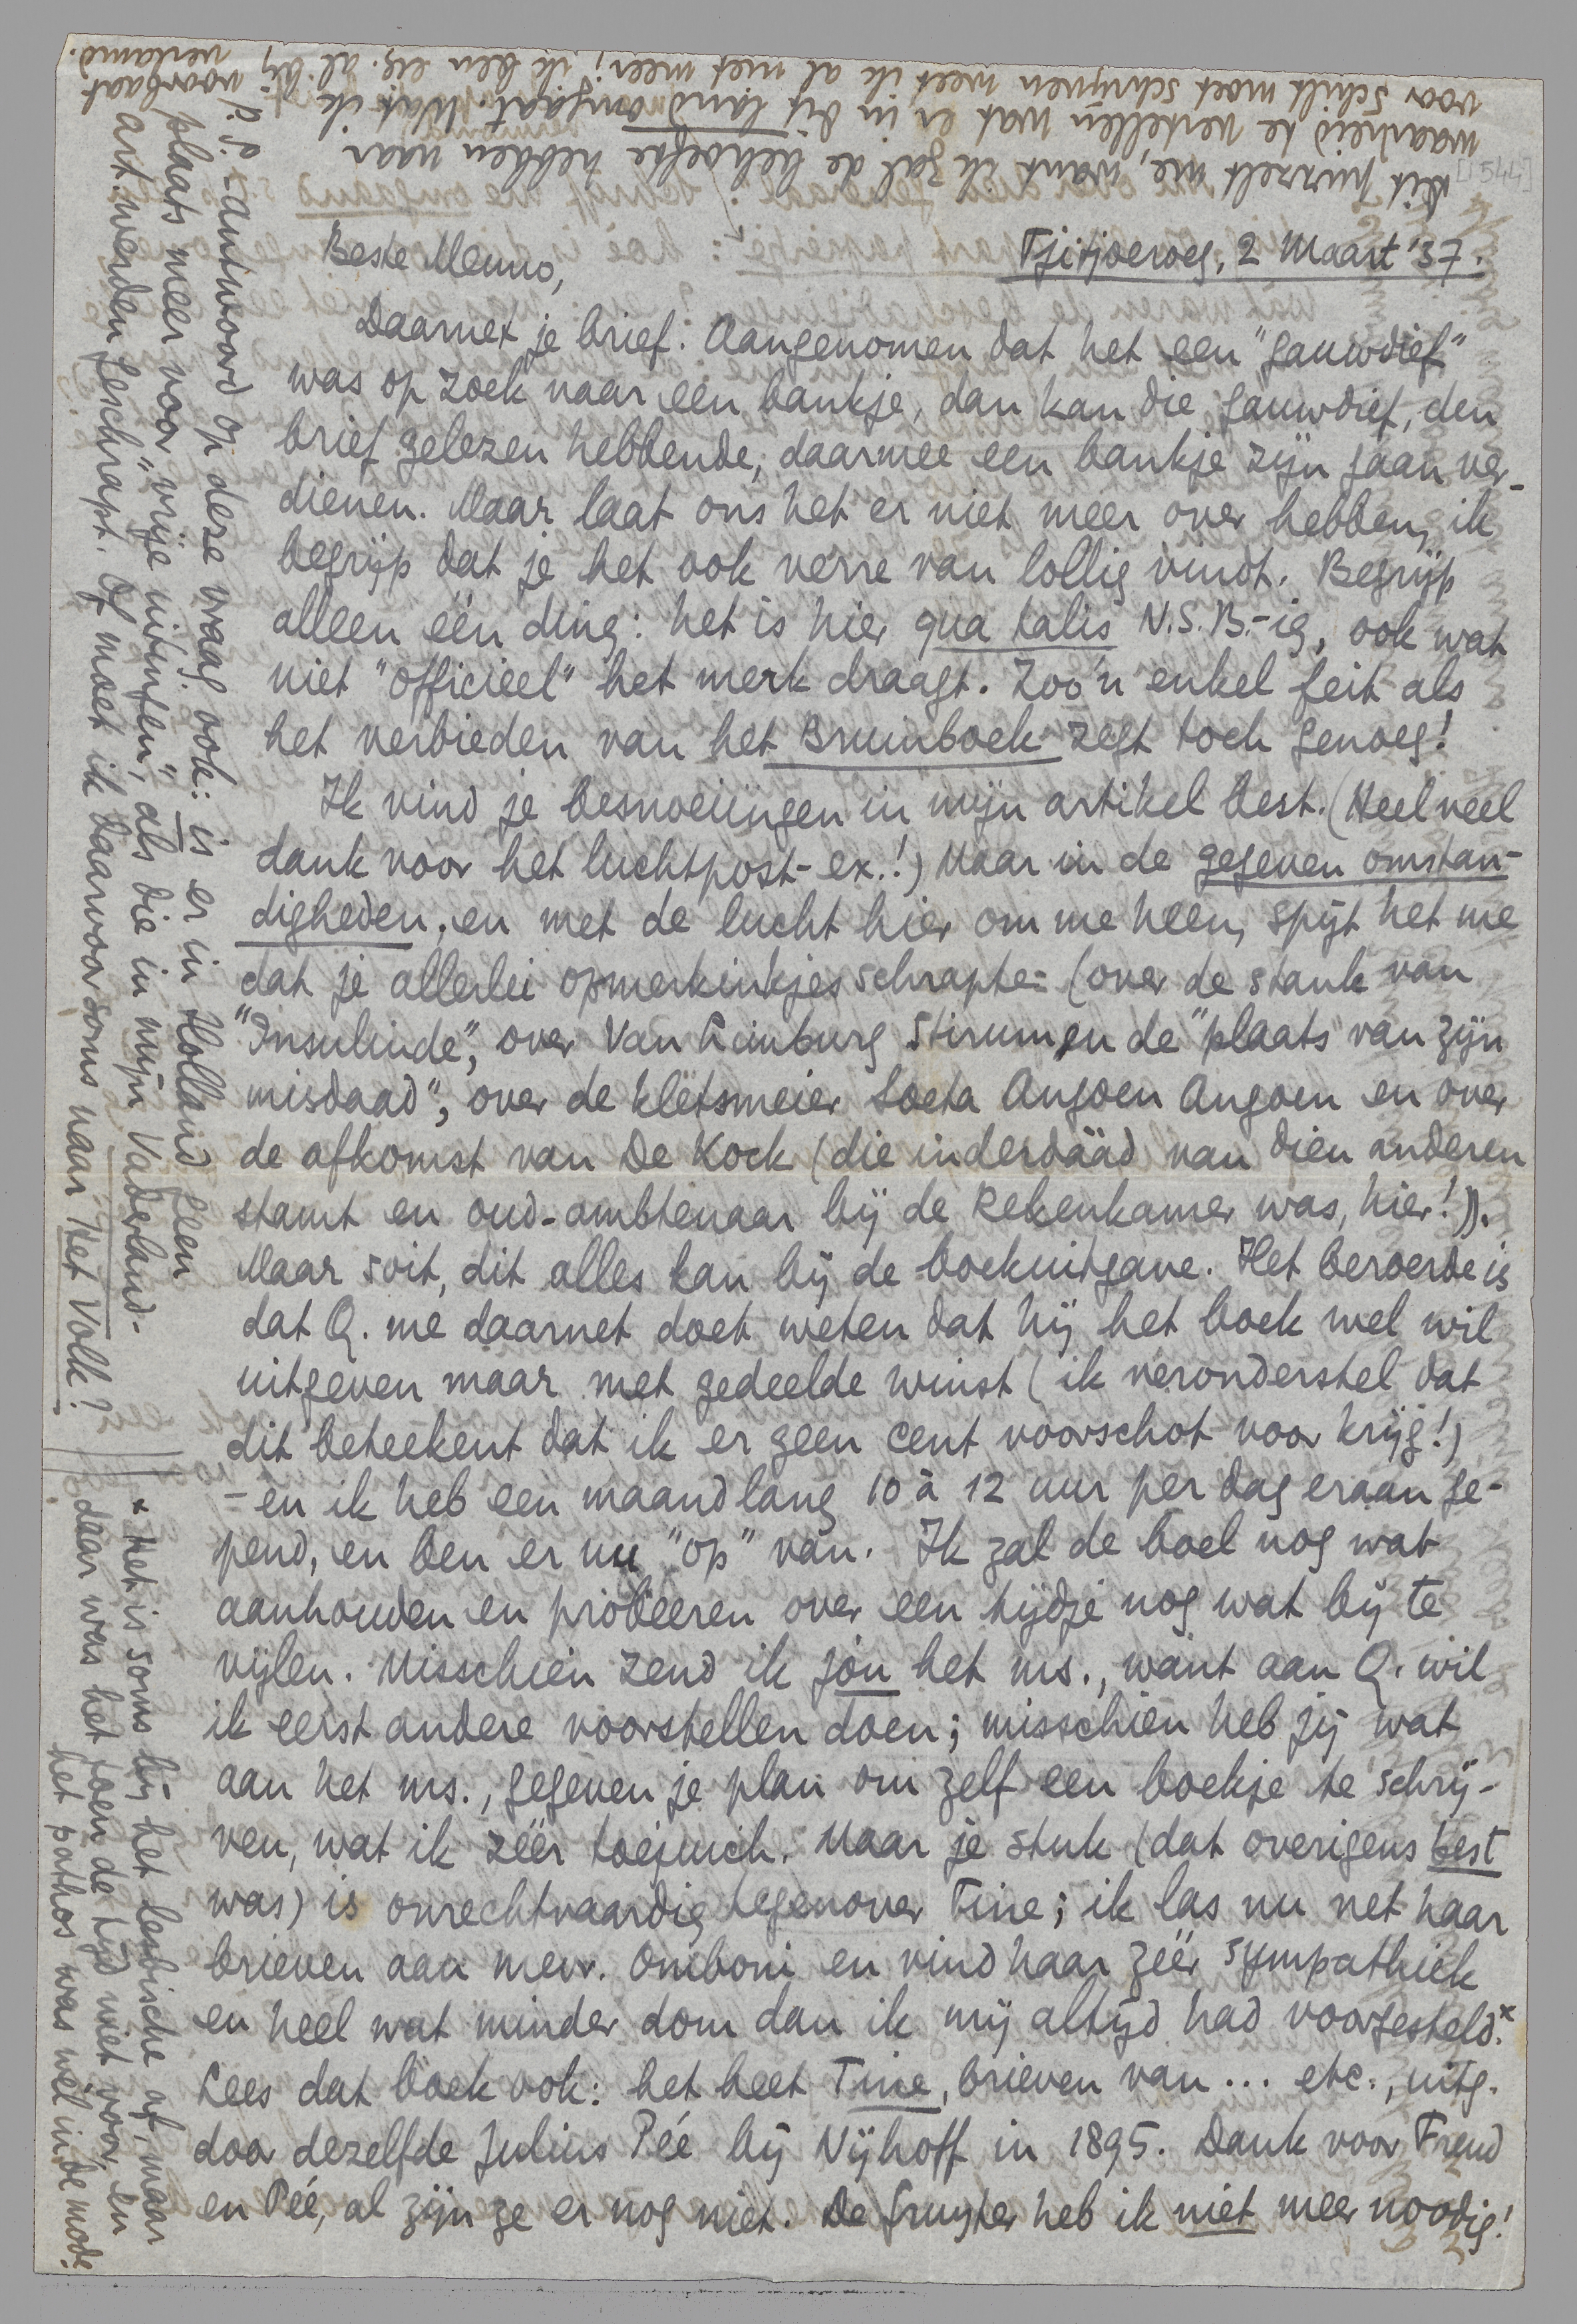 Tjitjoeroeg, 2 Maart '37.
Beste Menno,
Daarnet je brief. Aangenomen dat het een "gauwdief"
was op zoek naar een bankje, dan kan die gauwdief, den
brief gelezen hebbende, daarmee een bankje zijn gaan ver-
dienen. Maar laat ons het er niet meer over hebben, ik
begrijp dat je het ook verre van lollig vindt. Begrijp
alleen één ding: het is hier qua talis N.S.B.-ig, ook wat
niet "officieel" het merk draagt. Zoo'n enkel feit als
het verbieden van het Bruinboek zegt toch genoeg!
Ik vind je besnoeiïngen in mijn artikel best. (Heel veel
dank voor het luchtpost-ex.!) Maar in de gegeven omstan-
digheden, en met de lucht hier om me heen, spijt het me
dat je allerlei opmerkinkjes schrapte: (over de stank van
"Insulinde", over Van Limburg Stirum en de "plaats van zijn
misdaad", over de kletsmeier Soeta Angoen Angoen en over
de afkomst van De Kock (die inderdáád van dien anderen
stamt en oud-ambtenaar bij de Rekenkamer was, hier!)).
Maar soit, dit alles kan bij de boekuitgave. Het beroerde is
dat Q. me daarnet doet weten dat hij het boek wel wil
uitgeven maar met gedeelde winst (ik veronderstel dat
dit beteekent dat ik er geen cent voorschot voor krijg!)
- en ik heb een maand lang 10 à 12 uur per dag eraan ge-
pend, en ben er nu "op" van. Ik zal de boel nog wat
aanhouden en probeeren over een tijdje nog wat bij te
vijlen. Misschien zend ik jou het ms., want aan Q. wil
ik eerst andere voorstellen doen; misschien heb jij wat
aan het ms., gegeven je plan om zelf een boekje te schrij-
ven, wat ik zéér toejuich. Maar je stuk (dat overigens best
was) is onrechtvaardig tegenover Tine; ik las nu net haar
brieven aan mevr. Omboni en vind haar zéér sympathiek
en heel wat minder dom dan ik mij altijd had voorgesteld.*
Lees dat boek ook: het heet Tine, brieven van... etc., uitg.
door dezelfde Julius Pée bij Nijhoff in 1895. Dank voor Freud
en Pée, al zijn ze er nog niet. De Gruyter heb ik niet meer noodig!
* Het is soms bij het lesbische af, maar
daar was het toen de tijd niet voor, en
het pathos was wél in de mode.
P.S. - antwoord op deze vraag ook: is er in Holland geen
plaats meer voor "vrije uitingen", als die in mijn Vaderland-
art. werden geschrapt. Of moet ik daarvoor soms naar Het Volk?
Dit puzzelt me, want ik zal de behoefte hebben naar
waarheid te vertellen wat er in dit land omgaat. Wat ik
voor Schilt moet schrijven weet ik al niet meer; ik ben eig. al bij voorbaat
verlamd.
[1544]